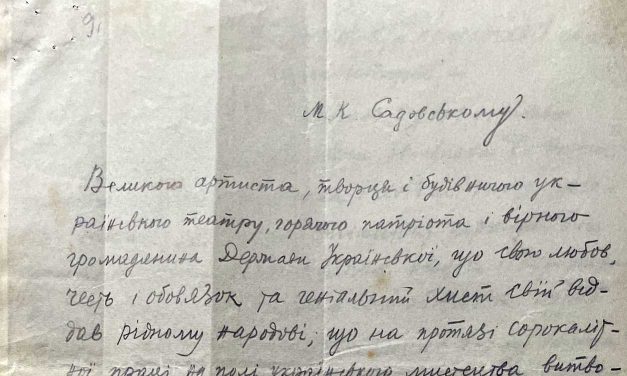 9.
М К Садовському.
Великого артиста, творця і будівничого ук-
раїнського театру, горячого патріота і вірного
громадянина Держави Української, що свою любов,
честь і обовязок та геніальний хист свій від-
дав рідному народові, що на протязі сорокаліт-
ної праці на полі українського мистецтва витво-